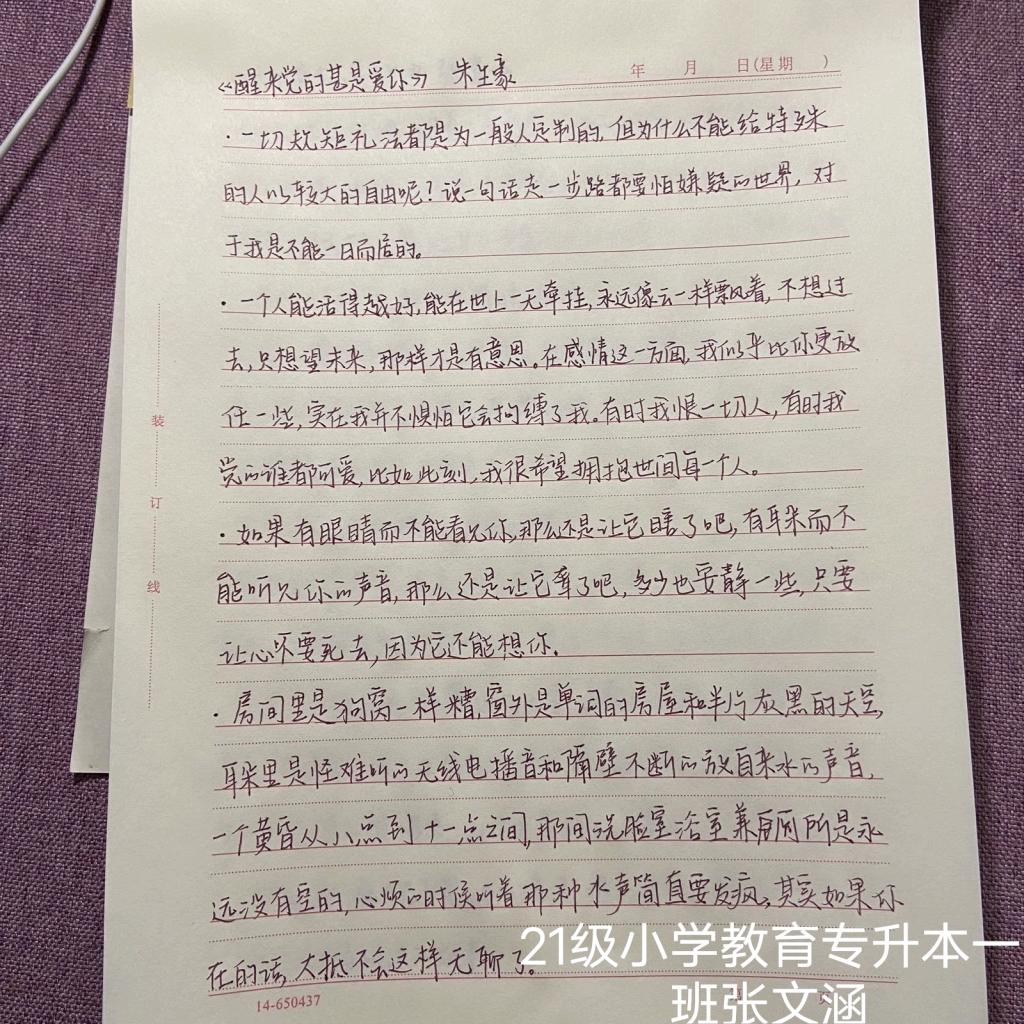 《醒来觉的甚是爱你》 朱生豪
年 月 日(星期 )
·一切规矩礼法都是为一般人定制的,但为什么不能给特殊
的人以较大的自由呢?说一句话走一步路都要怕嫌疑的世界,对
于我是不能一日而居的。
·一个人能活得越好,能在世上一无牵挂,永远像云一样飘着,不想过
去,只想望未来,那样才是有意思。在感情这一方面,我似乎比你更放
任一些,实在我并不惧怕它会拘缚了我。有时我恨一切人,有时我
觉的谁都可爱,比如此刻,我很希望拥抱世间每一个人。
·如果有眼睛而不能看见你,那么还是让它瞎了吧,有耳朵而不
能听见你的声音,那么还是让它聋了吧,多少也安静一些,只要
让心不要死去,因为它还能想你。
·房间里是狗窝一样糟,窗外是单词的房屋和半片灰黑的天空,
耳朵里是怪难听的天线电播音和隔壁不断的放自来水的声音,
一个黄昏从八点到十一点之间,那间洗脸室浴室兼厕所是永
远没有空的,心烦的时候听着那种水声简直要发疯。其实如果你
在的话,大抵不会这样无聊了。
装
订
线
14-650437
21级小学教育专升本一
班张文涵